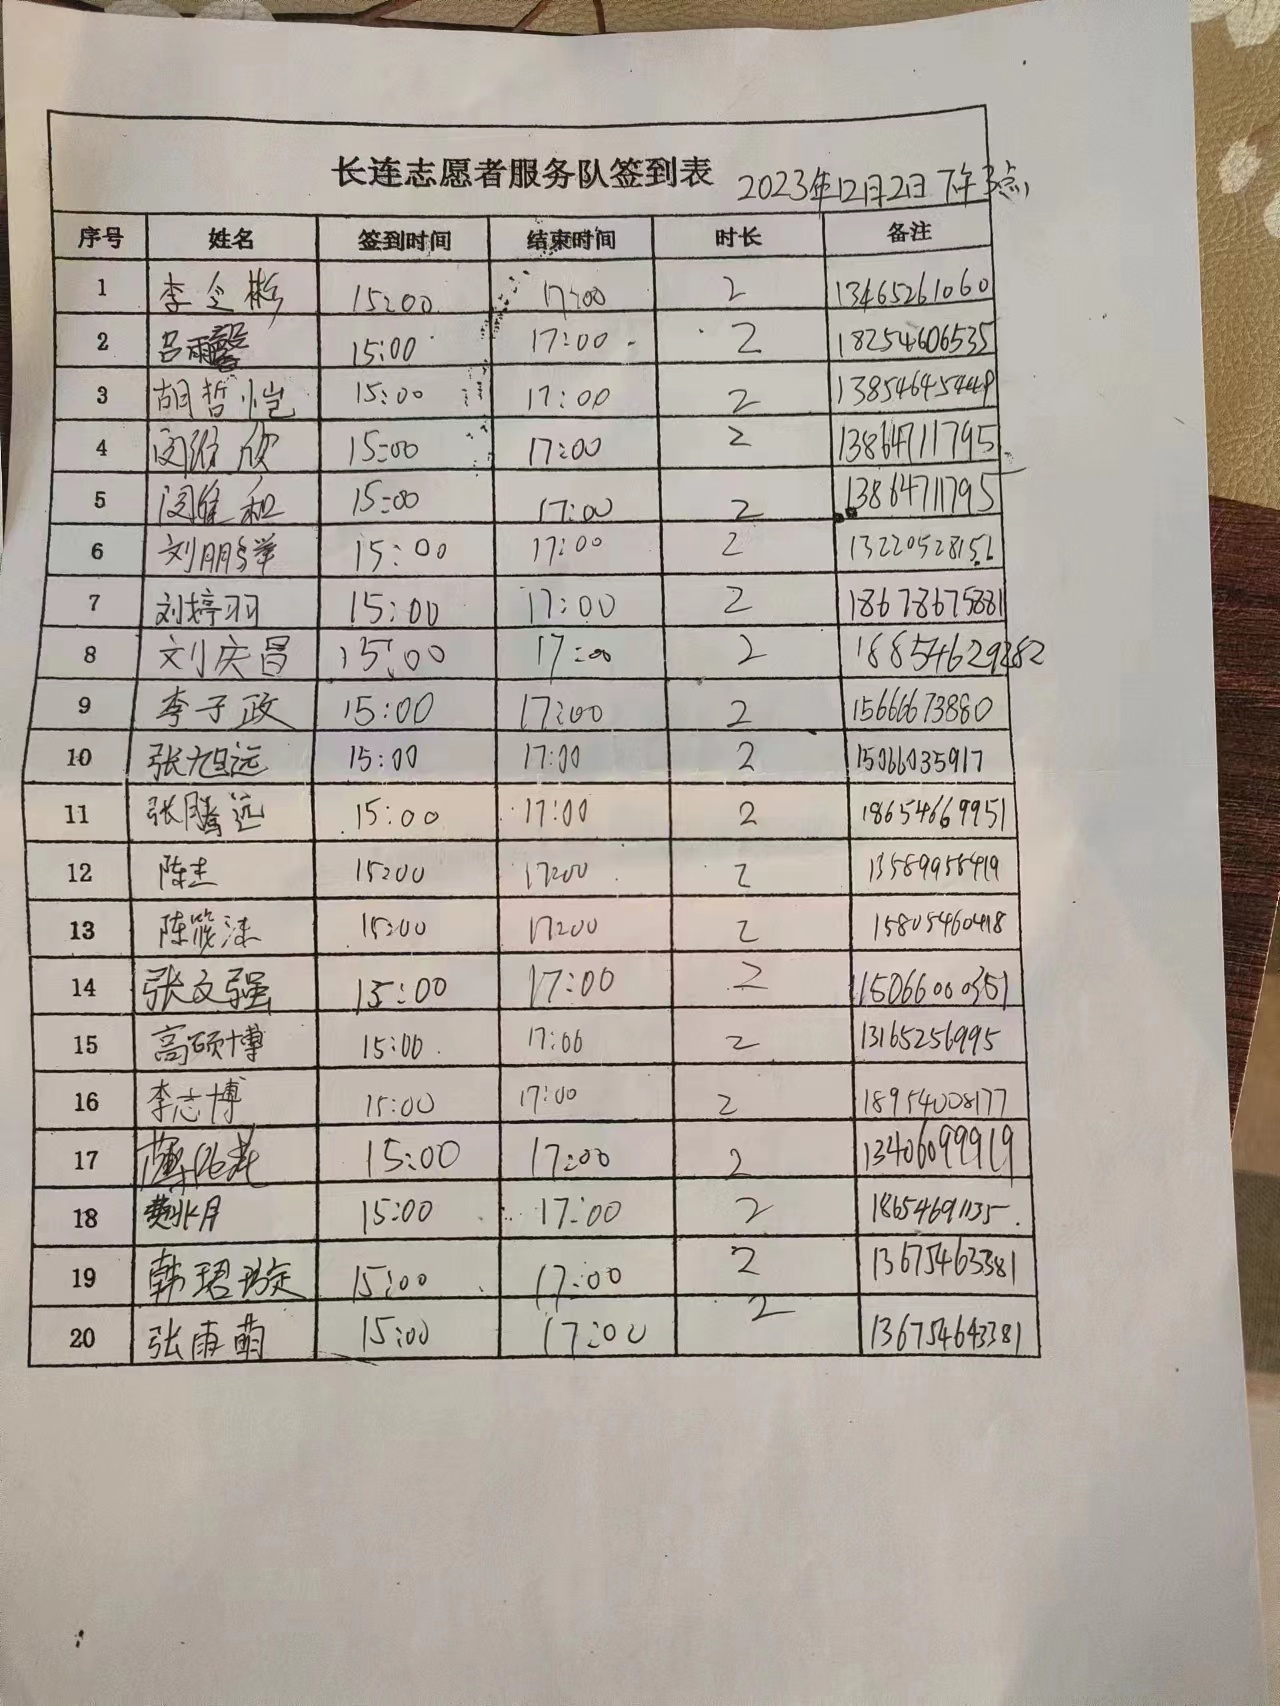 长连志愿者服务队签到表 2023年12月2日下午3点
序号 姓名 签到时间 结束时间 时长 备注
1 李令彬 15:00 17:00 2 13465261060
2 吕雨馨 15:00 17:00 2 18254606535
3 胡哲恺 15:00 17:00 2 13854645449
4 闵 欣 15:00 17:00 2 13864711795
5 闵 和 15:00 17:00 2 13864711795
6 刘鹏举 15:00 17:00 2 13220528151
7 刘婷羽 15:00 17:00 2 18678675881
8 刘庆昌 15:00 17:00 2 18854629282
9 李子政 15:00 17:00 2 15666673880
10 张旭远 15:00 17:00 2 15066035917
11 张腾远 15:00 17:00 2 18654669951
12 陈圭 15:00 17:00 2 13589958419
13 陈筱 15:00 17:00 2 15805460418
14 张文强 15:00 17:00 2 15066000351
15 高硕博 15:00 17:00 2 13165256995
16 李志博 15:00 17:00 2 18954008177
17 15:00 17:00 2 13406099919
18 15:00 17:00 2 18654691135
19 韩珺 15:00 17:00 2 13675463381
20 张雨萌 15:00 17:00 2 136754643381